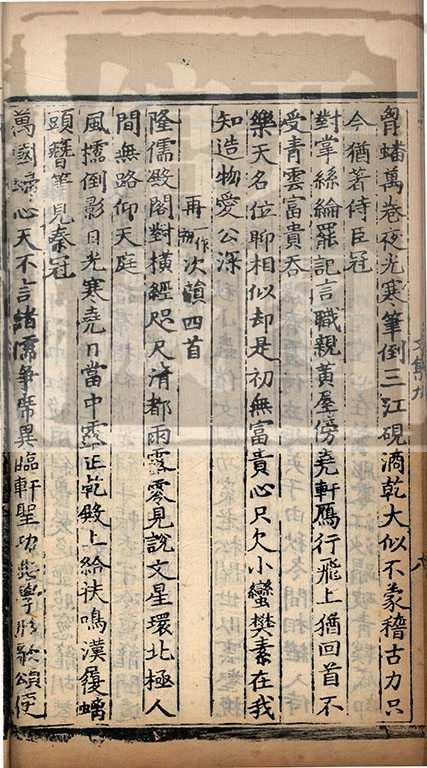 胷蟠萬卷夜光寒筆倒三江硯滴乾大似不蒙稽古力只
今猶著侍臣冠
對掌絲綸罷記言職親黃屋傍堯軒鴈行飛上猶回首不
受青雲富貴吞
樂天名位聊相似却是初無富貴心只欠小蠻樊素在我
知造物愛公深
再一作次韻四首
隆儒殿閣對橫經咫尺清都雨露零見說文星環北極人
間無路仰天庭
風櫺倒影日光寒堯日當中露正乾殿上給扶鳴漢履螭
頭簪筆見秦冠
萬國歸心天不言諸儒爭席異臨軒聖功典學形歌頌更